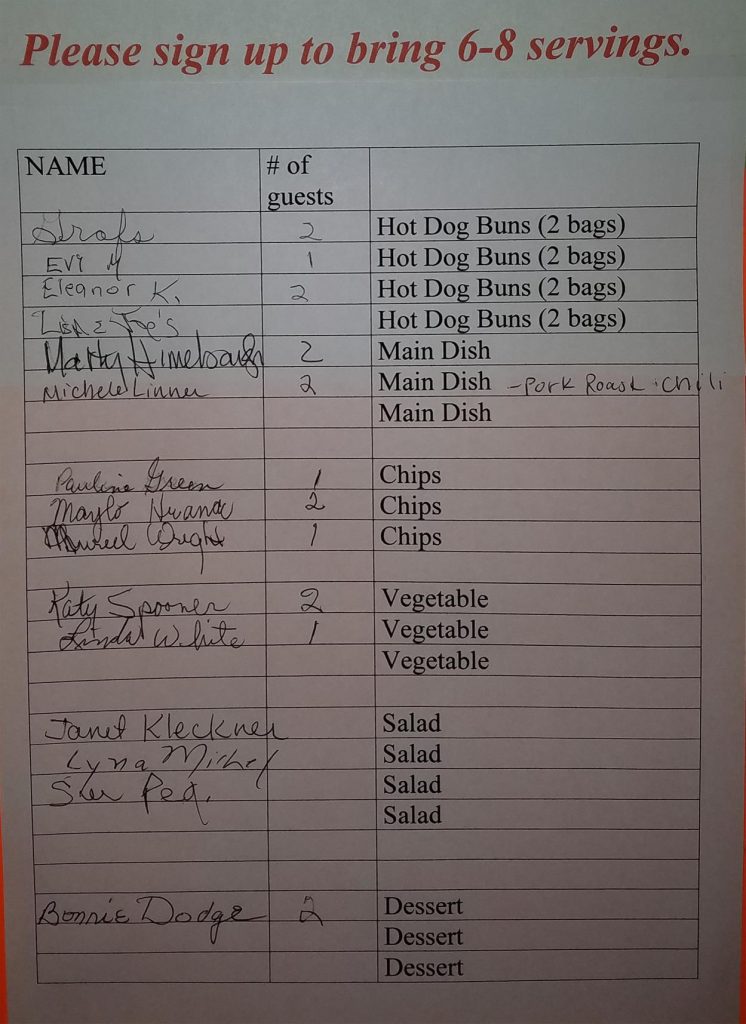 Please sign up to bring 6-8 servings.
NAME # of guests
Grafs 2 Hot Dog Buns (2 bags)
EVY M 1 Hot Dog Buns (2 bags)
Eleanor K. 2 Hot Dog Buns (2 bags)
Joe's Hot Dog Buns (2 bags)
Marty Himebaugh 2 Main Dish
Michele Linner 2 Main Dish -Pork Roast chili
Main Dish
Pauline Green 1 Chips
Maylo 2 Chips
Wright 1 Chips
Katy Spooner 2 Vegetable
Linda White 1 Vegetable
Vegetable
Janet Kleckner Salad
Lyna Michel Salad
Sue Salad
Salad
Bonnie Dodge 2 Dessert
Dessert
Dessert